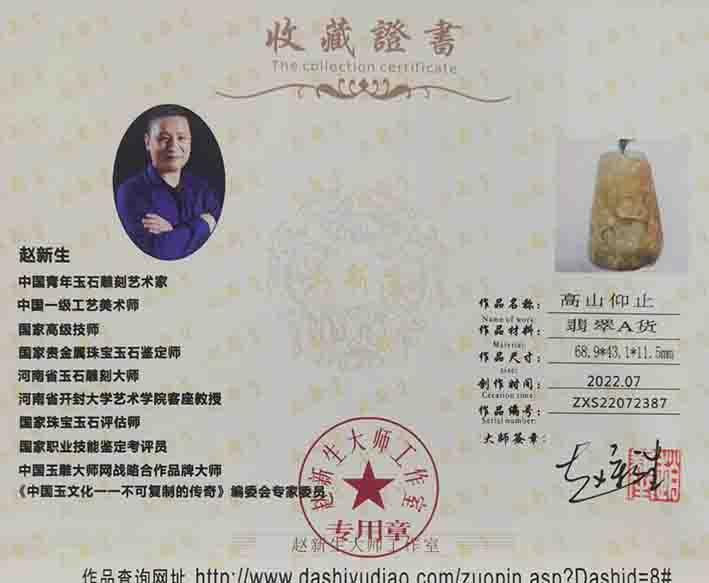 收藏證書
The collection certificate
赵新生
中国青年玉石雕刻艺术家
中国一级工艺美术师
国家高级技师
国家贵金属珠宝玉石鉴定师
河南省玉石雕刻大师
河南省开封大学艺术学院客座教授
国家珠宝玉石评估师
国家职业技能鉴定考评员
中国玉雕大师网战略合作品牌大师
《中国玉文化一一不可复制的传奇》编委会专家委员
作品名称： 高山仰止
Name of work:
作品材料： 翡翠A货
Material:
作品尺寸： 68.9*43.1*11.5mm
size:
制作时间： 2022.07
Creation time:
作品编号： ZXS22072387
Serial number:
大师签章：
赵新生
赵新生大师工作室
专用章
赵新生大师工作室
作品查询网址 http://www.dashiyudiao.com/zuopin.asp?Dashid=8#